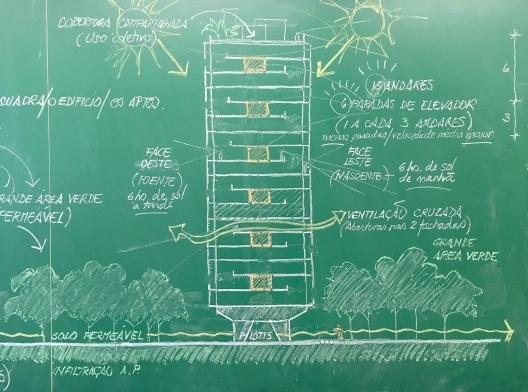 COBERTURA COMPARTILHADA
(Uso coletivo)
QUADRA/O EDIFÍCIO/OS APTOS.
18 ANDARES
6 PARADAS DE ELEVADOR
(1 A CADA 3 ANDARES)
menos paradas/velocidade média maior
6
3
FACE
OESTE
(POENTE)
6 hs. de sol
a tarde
FACE
LESTE
(NASCENTE)
6 hs. de sol
de manhã
GRANDE ÁREA VERDE
(PERMEÁVEL)
VENTILAÇÃO CRUZADA
(Aberturas nas 2 fachadas)
GRANDE
ÁREA VERDE
SOLO PERMEÁVEL
PILOTIS
INFILTRAÇÃO A.P.